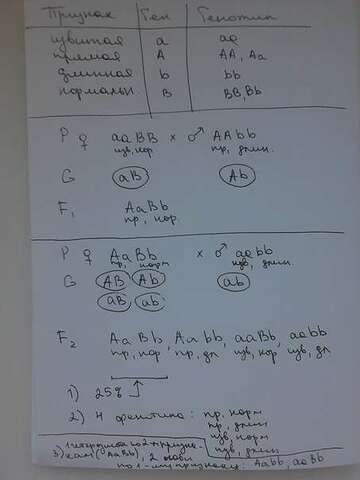 Признак Ген Генотип
извитая a aa
прямая A AA, Aa
длинная b bb
нормальн. B BB, Bb
P ♀ aaBB × ♂ AAbb
изв, нор пр, длин.
G aB Ab
F₁ AaBb
пр, нор.
P ♀ AaBb × ♂ aabb
пр, норм изв, длин.
G AB Ab ab
aB ab
F₂ AaBb, Aabb, aaBb, aabb
пр, нор, пр, дл изв, нор изв, дл
1) 25%
2) 4 фенотипа: пр. норм
пр, длин
изв, норм
изв, длин
3) 1 гетерозигота по 2 признакам (AaBb), 2 особи
по 1-му признаку: Aabb, aaBb